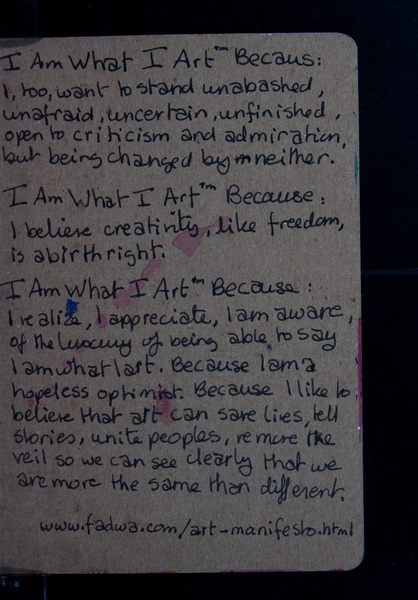 I Am What I Art™ Becaus:
I, too, want to stand unabashed,
unafraid, uncertain, unfinished,
open to criticism and admiration,
but being changed by neither.
I Am What I Art™ Because:
I believe creativity, like freedom,
is a birthright.
I Am What I Art™ Because:
I realize, I appreciate, I am aware,
of the luxury of being able to say
I am what I art. Because I am a
hopeless optimist. Because I like to
believe that art can save lives, tell
stories, unite peoples, remove the
veil so we can see clearly that we
are more the same than different.
www.fadwa.com/art-manifesto.html